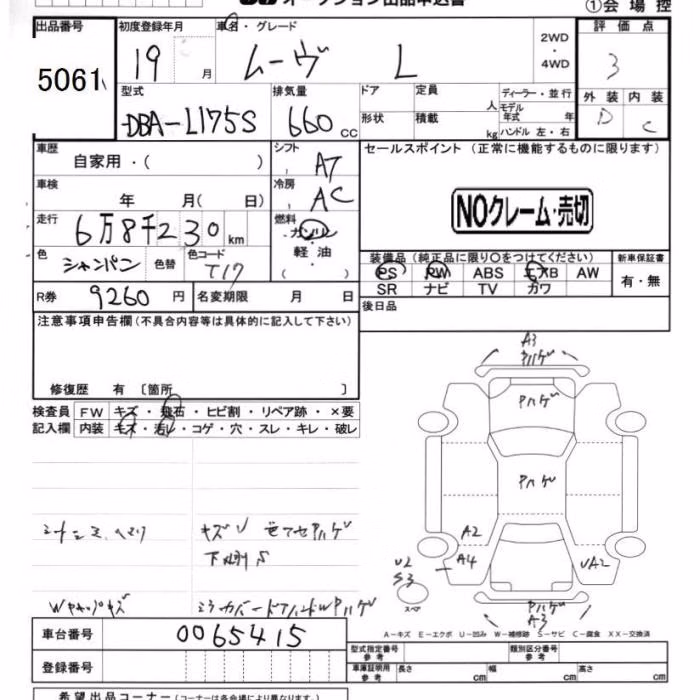 オークション出品申込書
①会場控
出品番号 初度登録年月 車名・グレード 2WD・4WD 評価点
5061 19 月 ムーヴ L 3
型式 排気量 ドア 定員 人 ディーラー・並行 外装 内装
DBA-L175S 660 cc 形状 積載 kg モデル年式 年 ハンドル 左・右 D C
車歴 自家用・( ) シフト AT セールスポイント (正常に機能するものに限ります)
車検 年 月( 日) 冷房 AC
NOクレーム・売切
走行 6万8千230km 燃料 ガソリン・軽油・( )
色 シャンパン 色替 色コード T17 装備品 (純正品に限り○をつけてください) 新車保証書
PS PW ABS エアB AW 有・無
R券 9260円 名変期限 月 日 SR ナビ TV カワ
注意事項申告欄 (不具合内容等は具体的に記入して下さい) 後日品
修復歴 有 〔箇所 〕
検査員 FW キズ・飛石・ヒビ割・リペア跡・×要
記入欄 内装 キズ・汚レ・コゲ・穴・スレ・キレ・破レ
A3
Pハゲ
Pハゲ
Pハゲ
A2
A4
UA2
U2
S3
スペア
Pハゲ
A3
キズU 色アセPハゲ
下回りS
Wキャップキズ ミラーカバードアハンドルWPハゲ
A-キズ E-エクボ U-凹み W-補修跡 S-サビ C-腐食 XX-交換済
車台番号 0065415
型式指定番号 参考 類別区分番号 参考
登録番号 車庫証明用 参考 長さ cm 幅 cm 高さ cm
希望出品コーナー (コーナーは各会場により異なります。)